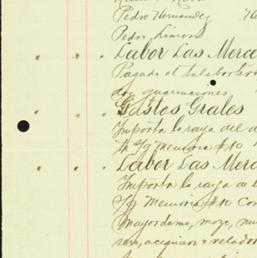 Pedro Hernandez
Pedro Limon
Labor Las Merc
Pagado al talabartero
dos guarniciones
Gastos Grales
Importa la raya del d
Sg Memoria #10
Labor Las Merc
Importa la raya de
Sg Memoria #10 Con
Mayordomo, mozo,